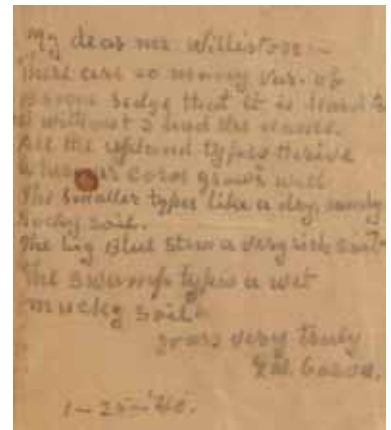 My dear Mr. Williston:-
There are so many var. of
broom sedge that it is hard to
without I had the name.
All the upland types thrive
where corn grows well
The smaller types like a dry, sandy
Rocky soil.
The big Blue Stem a very rich soil
The swamp types a wet
mucky soil
yours very truly
G.W. Carver.
1-25-40.